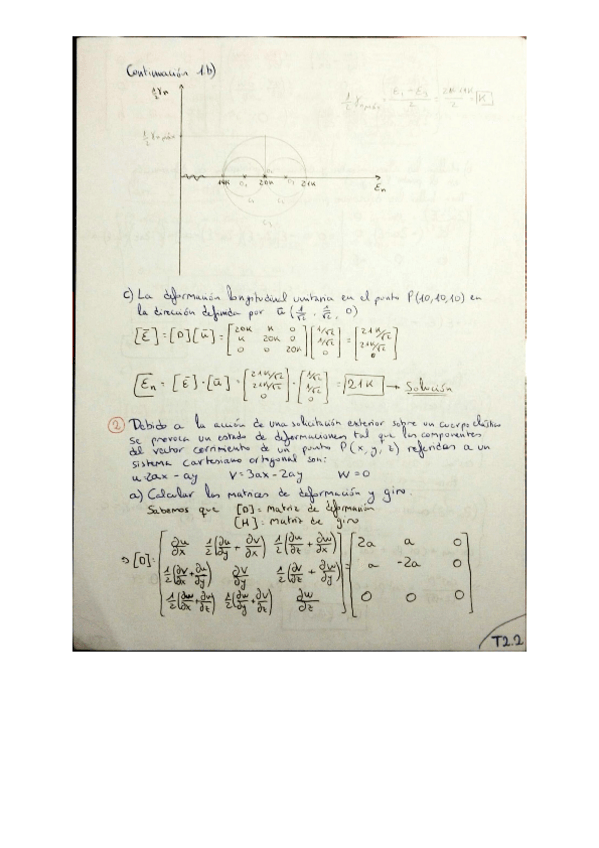 Continuación 1.b)
½ γn
½ γn máx = (ε₁ - ε₃)/2 = = K
½ γn máx
19K 20K 21K εn
C₃
c) La deformación longitudinal unitaria en el punto P(10,10,10) en
la dirección definida por ū (1/√2, 1/√2, 0)
[ε̄] = [D][ū] = [20K K 0; K 20K 0; 0 0 20K] [1/√2; 1/√2; 0] = [21K/√2; 21K/√2; 0]
[εn] = [ε̄]·[ū] = [21K/√2; 21K/√2; 0] · [1/√2; 1/√2; 0] = 21K → Solución
② Debido a la acción de una solicitación exterior sobre un cuerpo elástico
se provoca un estado de deformaciones tal que las componentes
del vector corrimiento de un punto P(x, y, z) referidas a un
sistema cartesiano ortogonal son:
u=2ax - ay V = 3ax - 2ay W = 0
a) Calcular las matrices de deformación y giro.
Sabemos que [D] = matriz de deformación
[H] = matriz de giro
⇒ [D] = [∂u/∂x ½(∂u/∂y + ∂v/∂x) ½(∂u/∂z + ∂w/∂x); ½(∂v/∂x + ∂u/∂y) ∂v/∂y ½(∂v/∂z + ∂w/∂y); ½(∂w/∂x + ∂u/∂z) ½(∂w/∂y + ∂v/∂z) ∂w/∂z] = [2a a 0; a -2a 0; 0 0 0]
T2.2